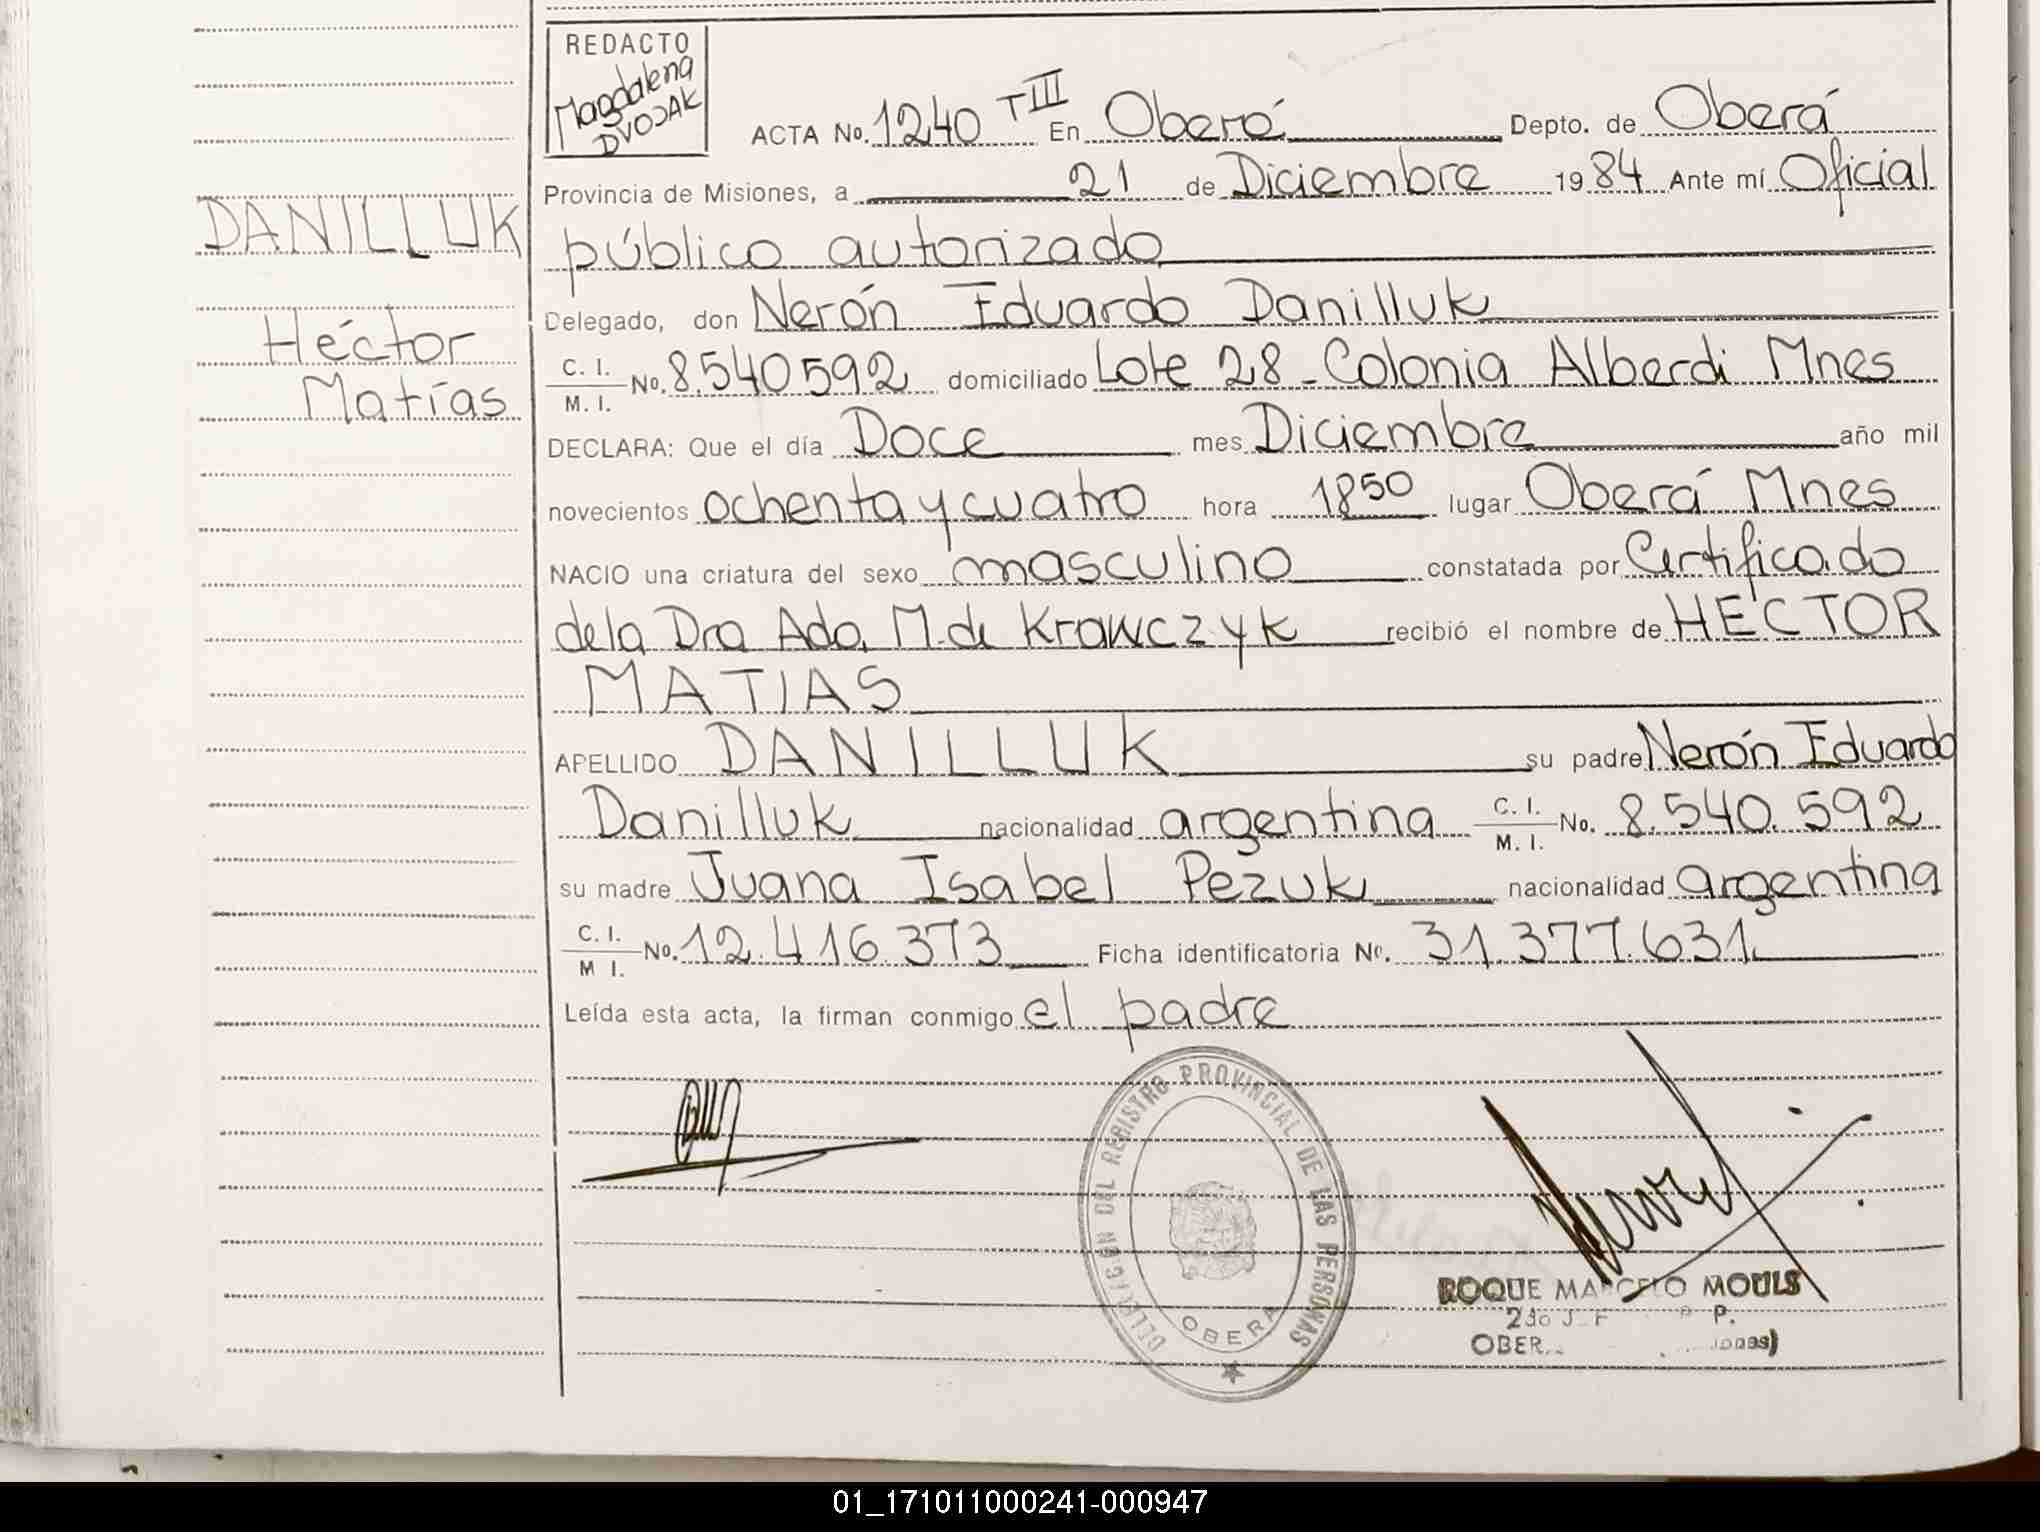 REDACTO
Magdalena
DVOJAK
ACTA No. 1240 T III En Oberá Depto. de Oberá
Provincia de Misiones, a 21 de Diciembre 1984 Ante mí Oficial
público autorizado
Delegado, don Nerón Eduardo Danilluk
C. I.
M. I. No. 8.540592 domiciliado Lote 28 - Colonia Alberdi Mnes
DECLARA: Que el día Doce mes Diciembre año mil
novecientos ochenta y cuatro hora 18 50 lugar Oberá Mnes
NACIO una criatura del sexo masculino constatada por Certificado
de la Dra Ada M. de Krawczyk recibió el nombre de HÉCTOR
MATIAS
APELLIDO DANILLUK su padre Nerón Eduardo
Danilluk nacionalidad argentina C. I. M. I. No. 8.540.592
su madre Juana Isabel Pezuk nacionalidad argentina
C. I. M I. No. 12.416.373 Ficha identificatoria No. 31.377.631
Leída esta acta, la firman conmigo el padre
DANILLUK
Héctor
Matías
DELEGACION DEL REGISTRO PROVINCIAL DE LAS PERSONAS
OBERA
ROQUE MARCELO MOULS
01_171011000241-000947